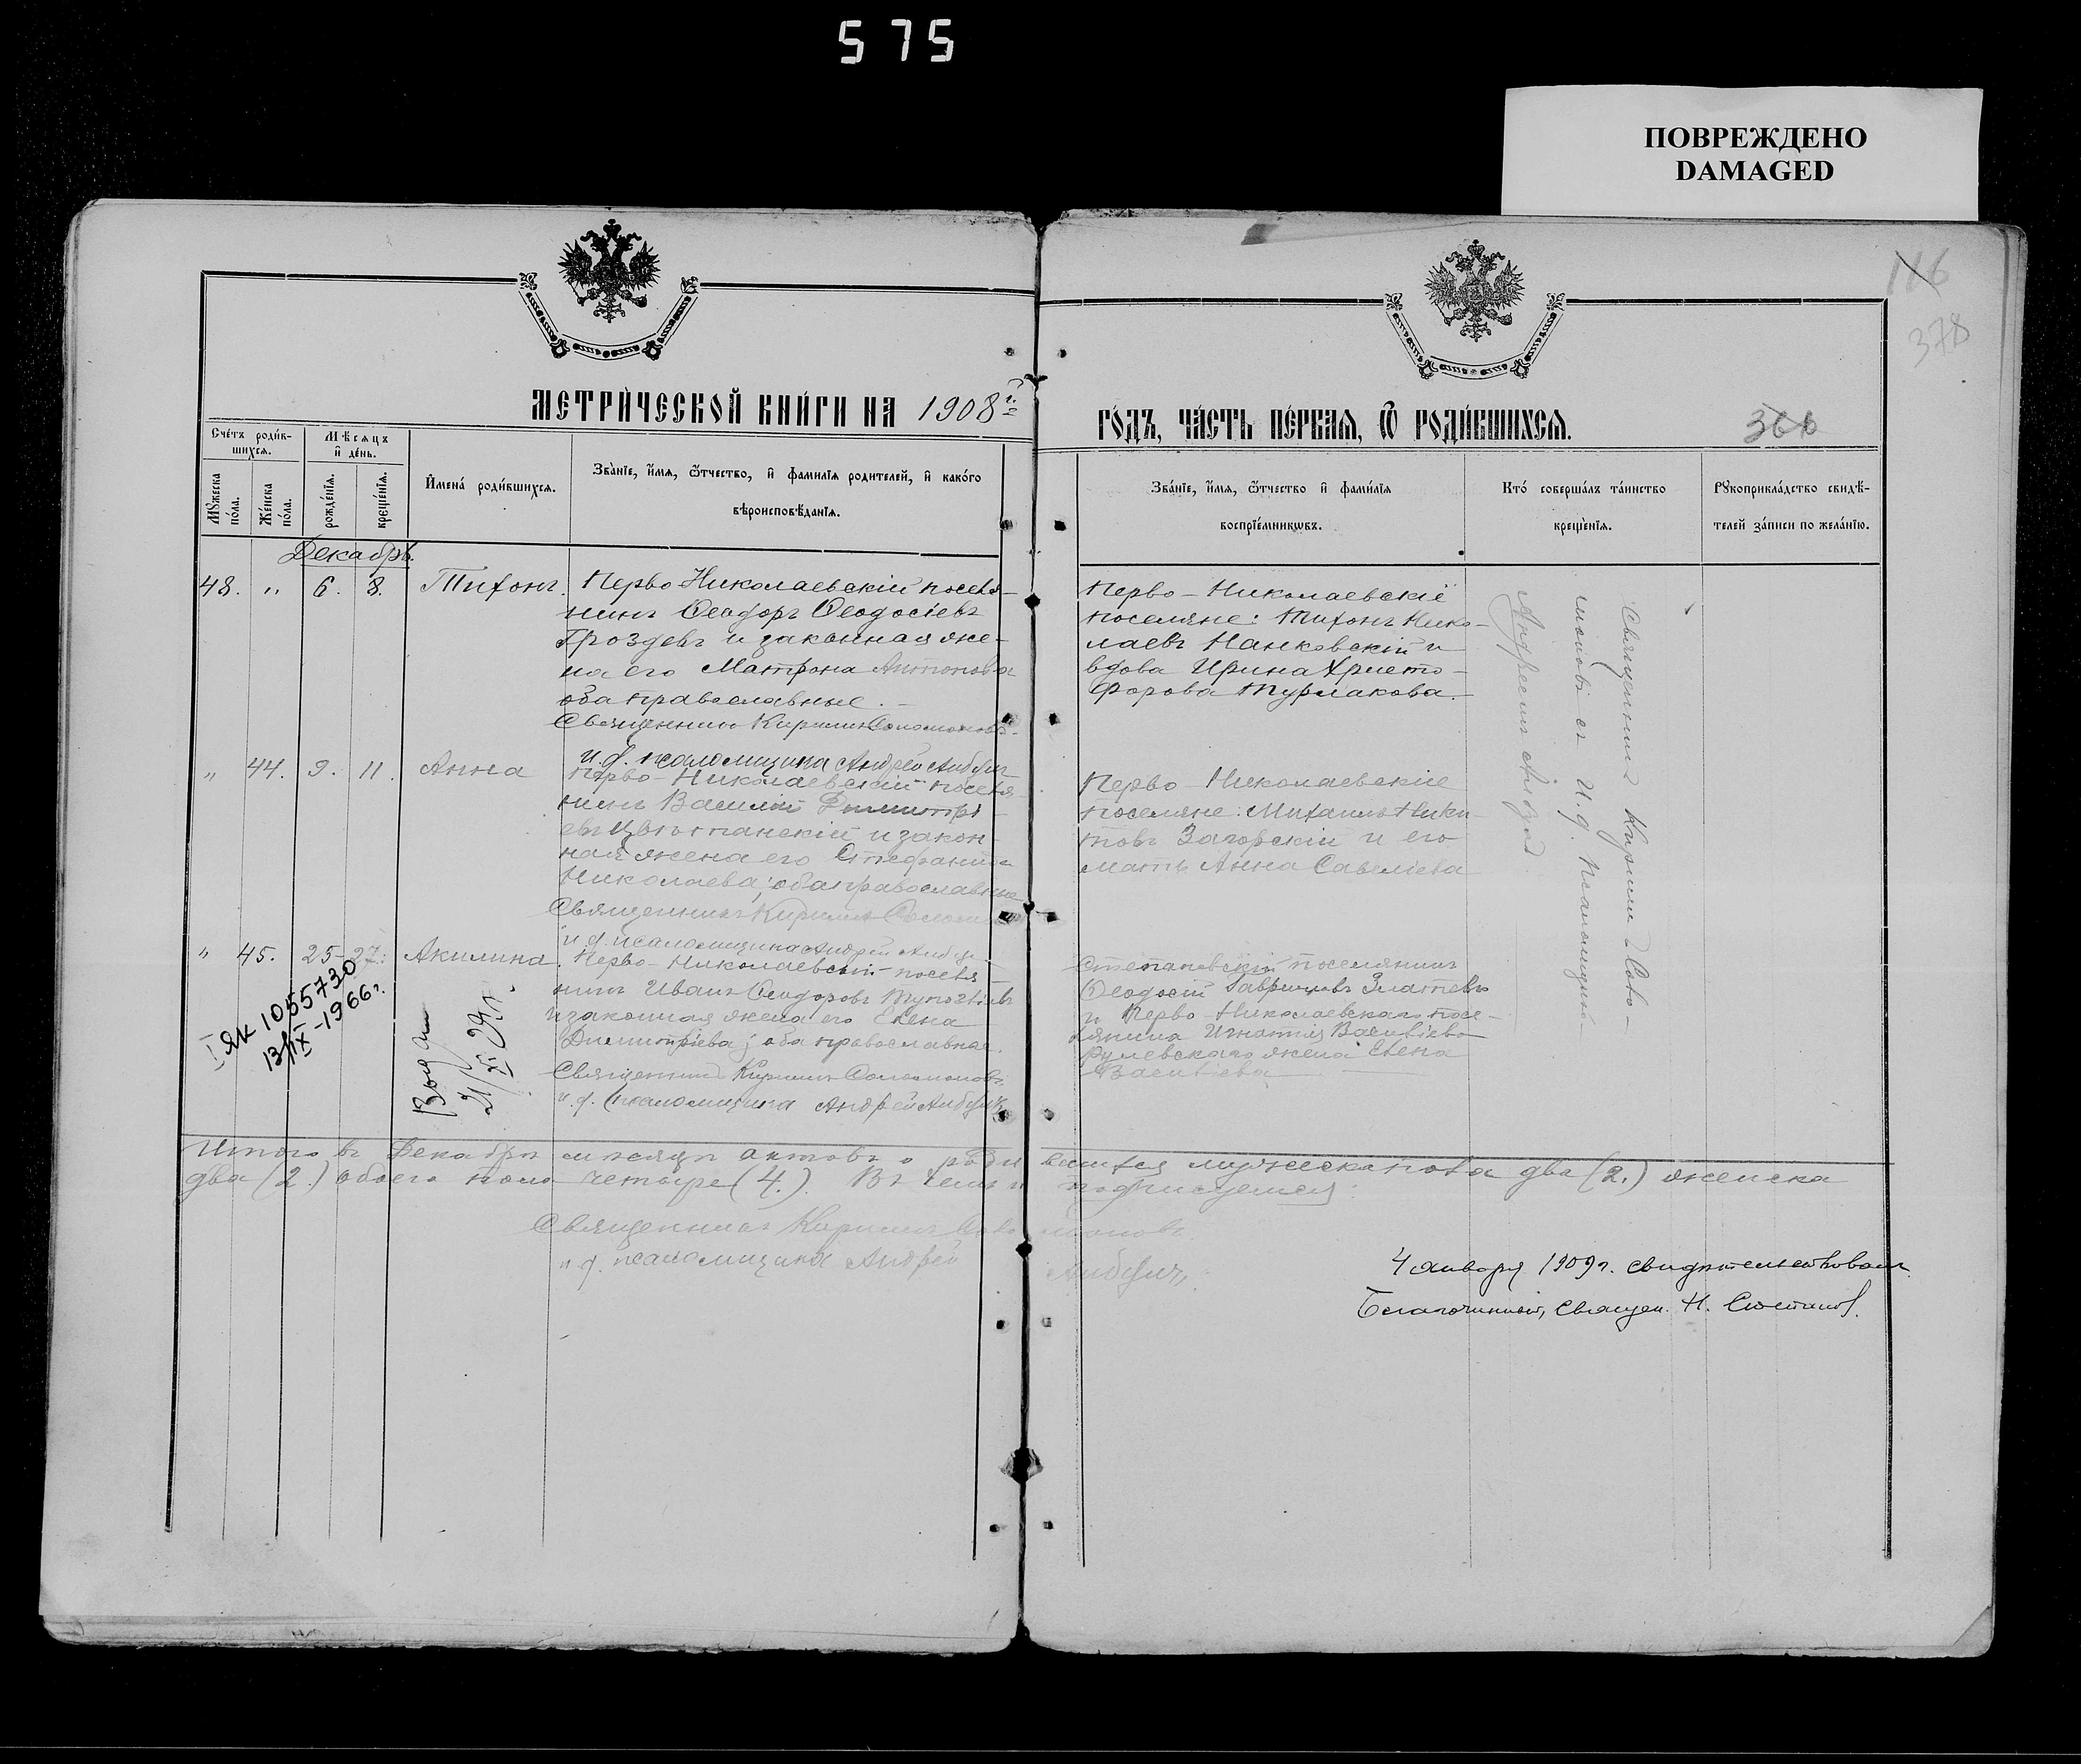 575
ПОВРЕЖДЕНО
DAMAGED
116
378
МЕТРИ́ЧЕСКОЙ КНИ́ГИ НА 1908 г.
ГО́ДЪ, ЧА́СТЬ ПЕ́РВАЯ, Ѿ РОДИ́ВШИХСЯ.
Сче́тъ роди́в-
шихся.
Мѣсяцъ
и҆ де́нь.
Мꙋ́жеска
по́ла.
Же́нска
по́ла.
рожде́нїя.
креще́нїя.
И҆мена̀ роди́вшихся.
Зва́нїе, и҆́мя, ѻ҆́тчество, и҆ фами́лїя роди́телей, и҆ како́гѡ
вѣроисповѣ́данїя.
Зва́нїе, и҆́мя, ѻ҆́тчество и҆ фами́лїя
воспрїе́мникѡвъ.
Кто̀ соверша́лъ та́инство
креще́нїя.
Рꙋкоприкла́дство свидѣ́-
телей за́писи по жела́нїю.
Декабрь.
48. " 6. 8. Тихонъ.
Перво-Николаевскій поселя-
нинъ Ѳеодоръ Ѳеодосіевъ
Гроздевъ и законная же-
на его Матрона Антонова
оба православные.
Священникъ Кириллъ Соломоновъ.
и. д. псаломщика Андрей
Перво-Николаевскіе
поселяне: Тихонъ Нико-
лаевъ Панковскій и
вдова Ирина Христо-
форова Турлакова.
Священникъ Кириллъ Соло-
моновъ съ и. д. псаломщика
Андреемъ
" 44. 9. 11. Анна
Перво-Николаевскій поселя-
нинъ Василій Димитрі-
евъ и закон-
ная жена его Стефанида
Николаева; оба православные
Священникъ Кириллъ
и. д. псаломщика Андрей
Перво-Николаевскіе
поселяне: Михаилъ Ники-
товъ Загорскій и его
мать Анна Савеліева
" 45. 25 27. Акилина.
Перво-Николаевскій поселя-
нинъ Иванъ Ѳеодоровъ
и законная жена его Елена
Димитріева; оба православные.
Священникъ Кириллъ Соломоновъ.
и. д. псаломщика Андрей
Степановскій поселянинъ
Ѳеодосій Гавриловъ Златевъ
и Перво-Николаевскаго посе-
лянина Игнатія Васильева
жена Елена
Васильева
I ЯК 1055730
13/IX-1966 г.
Итого въ Декабрѣ мѣсяцѣ актовъ о родившихся мужеска пола два (2.) женска
два (2.) обоего пола четыре (4.). Въ чемъ и подписуемся:
Священникъ Кириллъ Соломоновъ
и. д. псаломщика Андрей
4 января 1909 г. свидѣтельствовалъ
Благочинный, священ. Н.